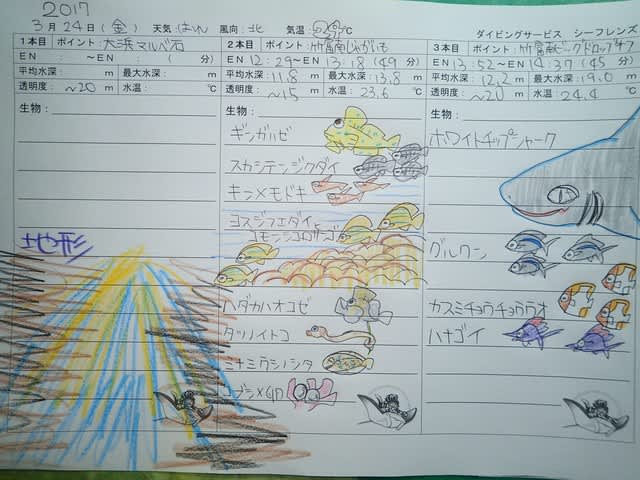 2017
3月24日(金) 天気: はれ 風向: 北 気温: ℃ ダイビングサービス シーフレンズ
1本目 ポイント: 大浜マルベ石
EN : ～EN : ( 分)
平均水深: m 最大水深: m
透明度: ～20 m 水温: ℃
生物:
地形
2本目 ポイント: 竹富南じゃがいも
EN 12:29～EN 13:18 (49 分)
平均水深: 11.8 m 最大水深: 13.8 m
透明度: ～15 m 水温: 23.6 ℃
生物:
ギンガハゼ
スカシテンジクダイ
キンメモドキ
ヨスジフエダイと
コモンシコロサンゴ
ハダカハオコゼ
タツノイトコ
ミナミウシノシタ
3本目 ポイント: 竹富南ビックドロップオフ
EN 13:52～EN 14:37 (45 分)
平均水深: 12.2 m 最大水深: 19.0 m
透明度: ～20 m 水温: 24.4 ℃
生物:
ホワイトチップシャーク
グルクン
カスミチョウチョウウオ
ハナゴイ